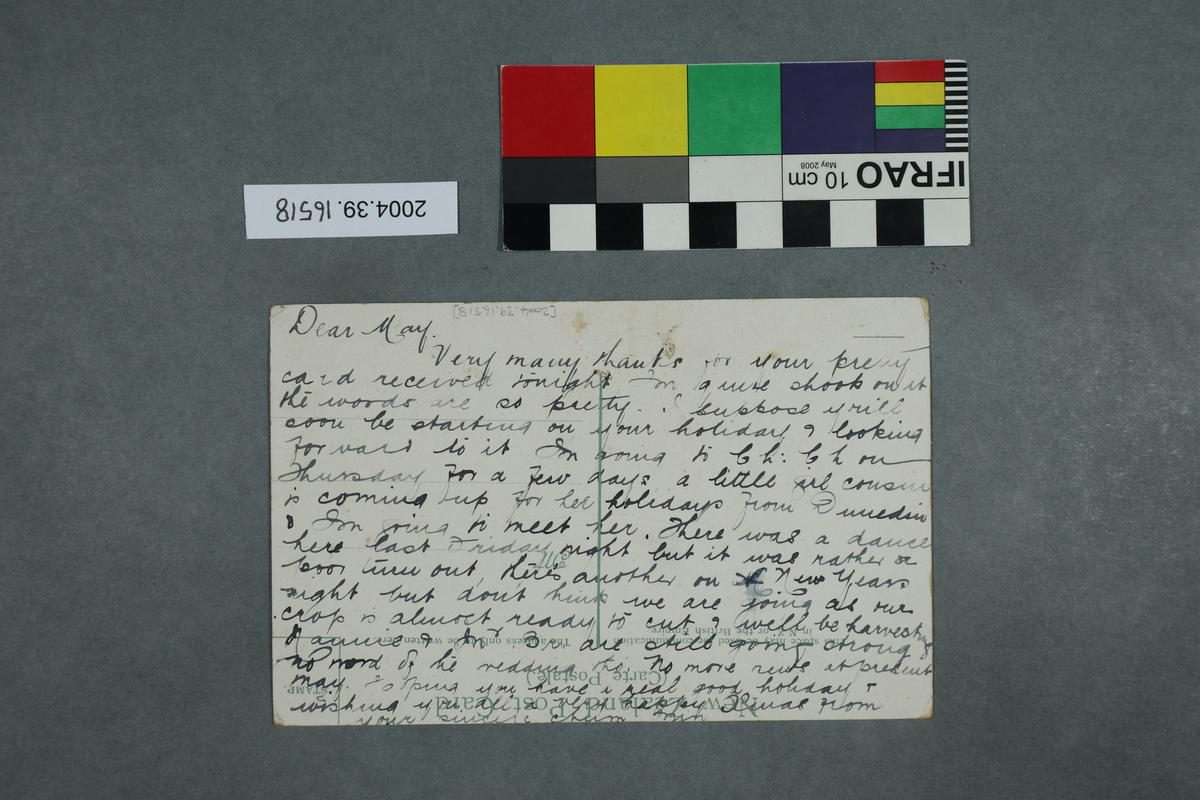 IFRAO
10 cm
May 2008
2004.39.16518
[2004.39.16518]
Dear May.
Very many thanks for your pretty
card received tonight Im quite shook on it
the words are so pretty. I suppose you'll
soon be starting on your holiday & looking
forward to it Im going to Ch: Ch on
Thursday for a few days a little girl cousin
is coming up for her holidays from Dunedin
& Im going to meet her. There was a dance
here last Friday night but it was rather a
poor turn out, there's another on New Years
night but dont think we are going as our
crop is almost ready to cut & we'll be harvesting
& Mr Br are still going strong
no word of the wedding tho. No more news at present
May. Hoping you have a real good holiday &
wishing you all a very happy Xmas from
your sincere chum
This space may be used for communication
in N.Z. or the British Empire
The address only to be written here
(Carte Postale.)
New Zealand Post Card
STAMP.